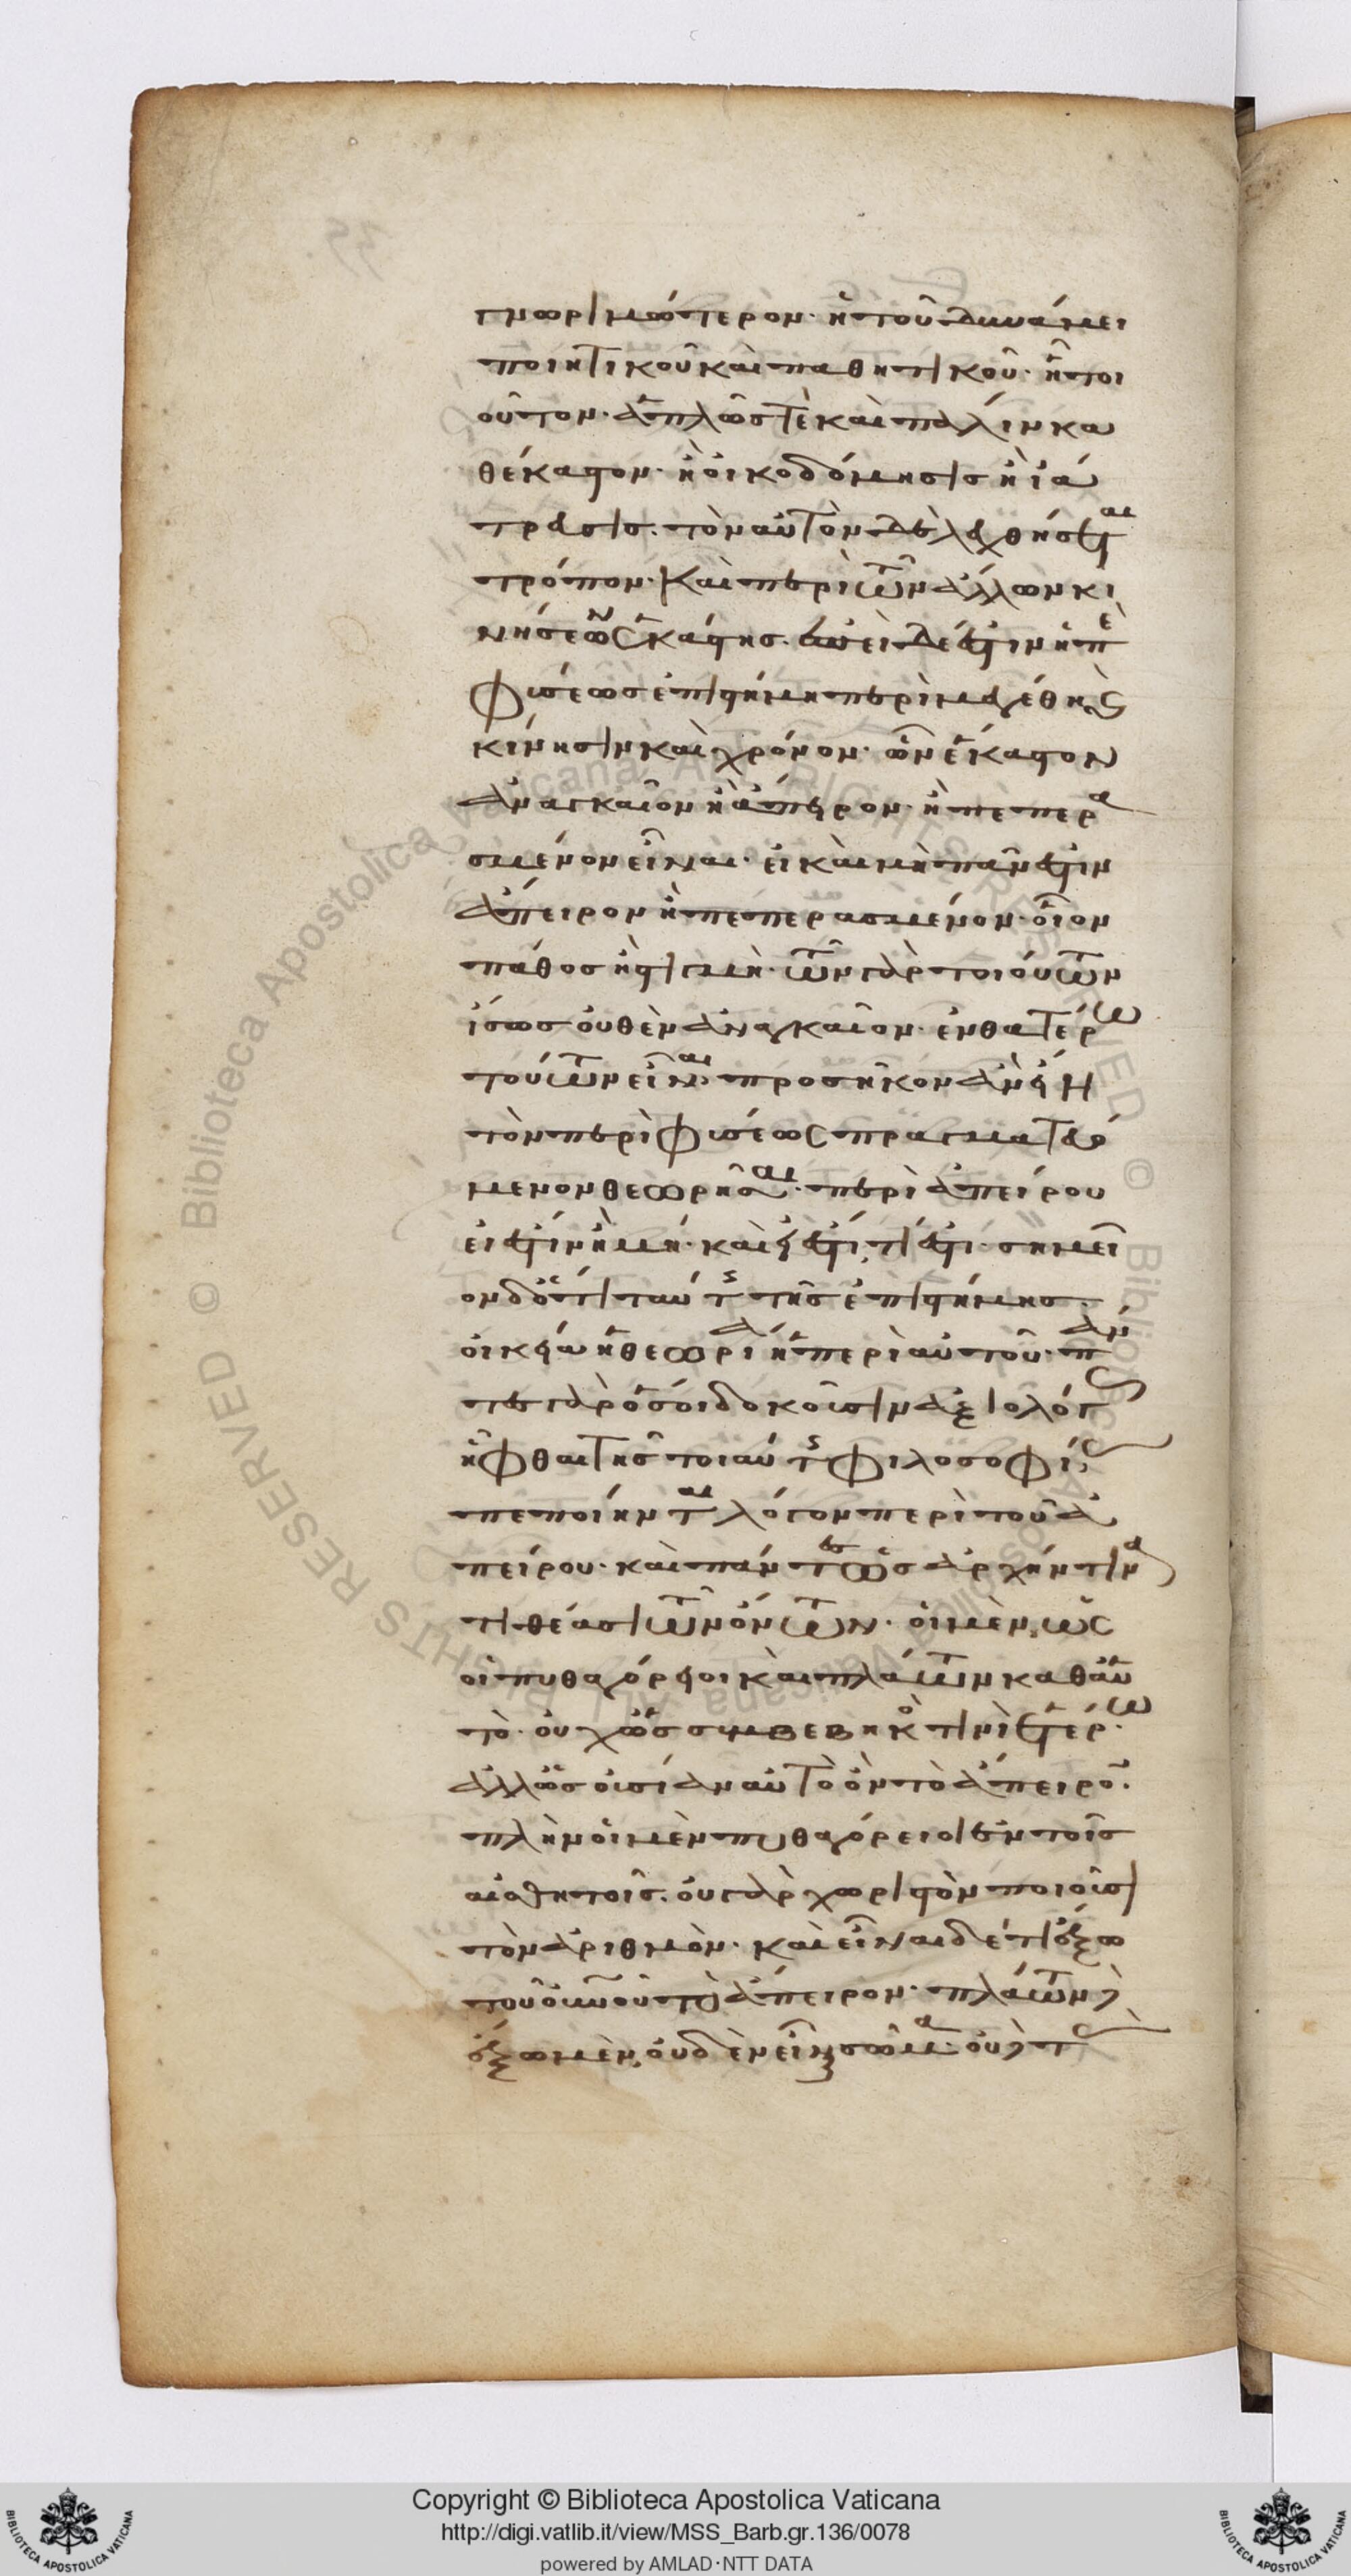 γνωριμώτερον· ἡ τοῦ δυνάμει
ποιητικοῦ καὶ παθητικοῦ· ἧ τοι
οῦτον· ἁπλῶς τὲ καὶ πάλιν κα
θέκαστον· ἢ οἰκοδόμησις ἢ ἰά
τρευσις. τὸν αὐτὸν δὲ λεχθήσεται
τρόπον· καὶ περὶ τῶν ἄλλων κι
νήσεων ἑκάστης. ἐπεὶ δέ ἐστιν ἡ περὶ
φύσεως ἐπιστήμη περὶ μεγέθη καὶ
κίνησιν καὶ χρόνον· ὧν ἕκαστον
ἀναγκαῖον ἢ ἄπειρον· ἢ πεπερα
σμένον εἶναι· εἰ καὶ μὴ πᾶν ἐστιν
ἄπειρον ἢ πεπερασμένον· οἷον
πάθος ἢ στιγμή· τῶν γὰρ τοιούτων
ἴσως οὐθὲν ἀναγκαῖον· ἐν θατέρω
τούτων εἶναι· προσῆκον ἂν εἴη
τὸν περὶ φύσεως πραγματευό
μενον θεωρῆσαι· περὶ ἀπείρου
εἰ ἔστιν ἢ μή· καὶ εἰ ἔστι, τί ἐστι· σημεῖ
ον δ' ὅτι ταύτης τῆς ἐπιστήμης
οἰκεία ἡ θεωρία ἡ περὶ αὐτοῦ· πάν
τες γὰρ ὅσοι δοκοῦσιν ἀξιολόγως
ἧφθαι τῆς τοιαύτης φιλοσοφίας
πεποίηνται λόγον περὶ τοῦ ἀ
πείρου· καὶ πάντες ὡς ἀρχήν τινα
τιθέασι τῶν ὄντων· οἱ μὲν, ὡς
οἱ πυθαγόρειοι καὶ πλάτων καθ' αὑ
τό· οὐχ ὡς συμβεβηκός τινι ἑτέρω·
ἀλλ' ὡς οὐσίαν αὐτὸ ὂν τὸ ἄπειρον·
πλὴν οἱ μὲν πυθαγόρειοι ἐν τοῖς
αἰσθητοῖς. οὐ γὰρ χωριστὸν ποιοῦσι
τὸν ἀριθμόν· καὶ εἶναι δ' ἔτι ἔξω
τοῦ οὐνοῦ τὸ ἄπειρον· πλάτων δὲ
ἔξω μὲν, οὐδὲν εἶναι σῶμα· οὐδὲ τὰς